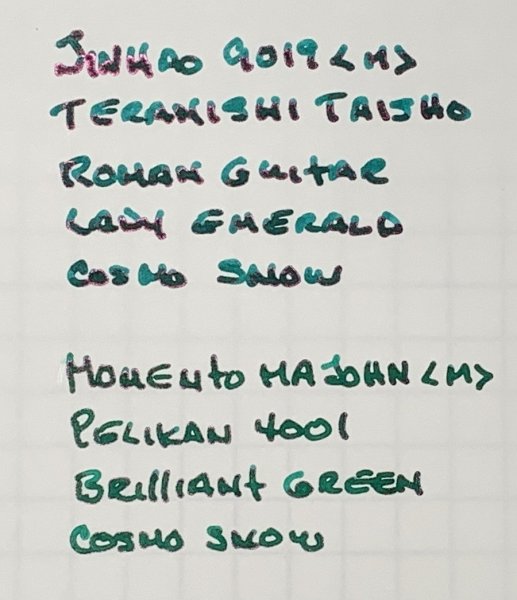 JINHAO 9019 <M>
TERANISHI TAISHO
ROMAN GUITAR
LADY EMERALD
COSMO SNOW
MOMENTO MAJOHN <M>
PELIKAN 4001
BRILLIANT GREEN
COSMO SNOW